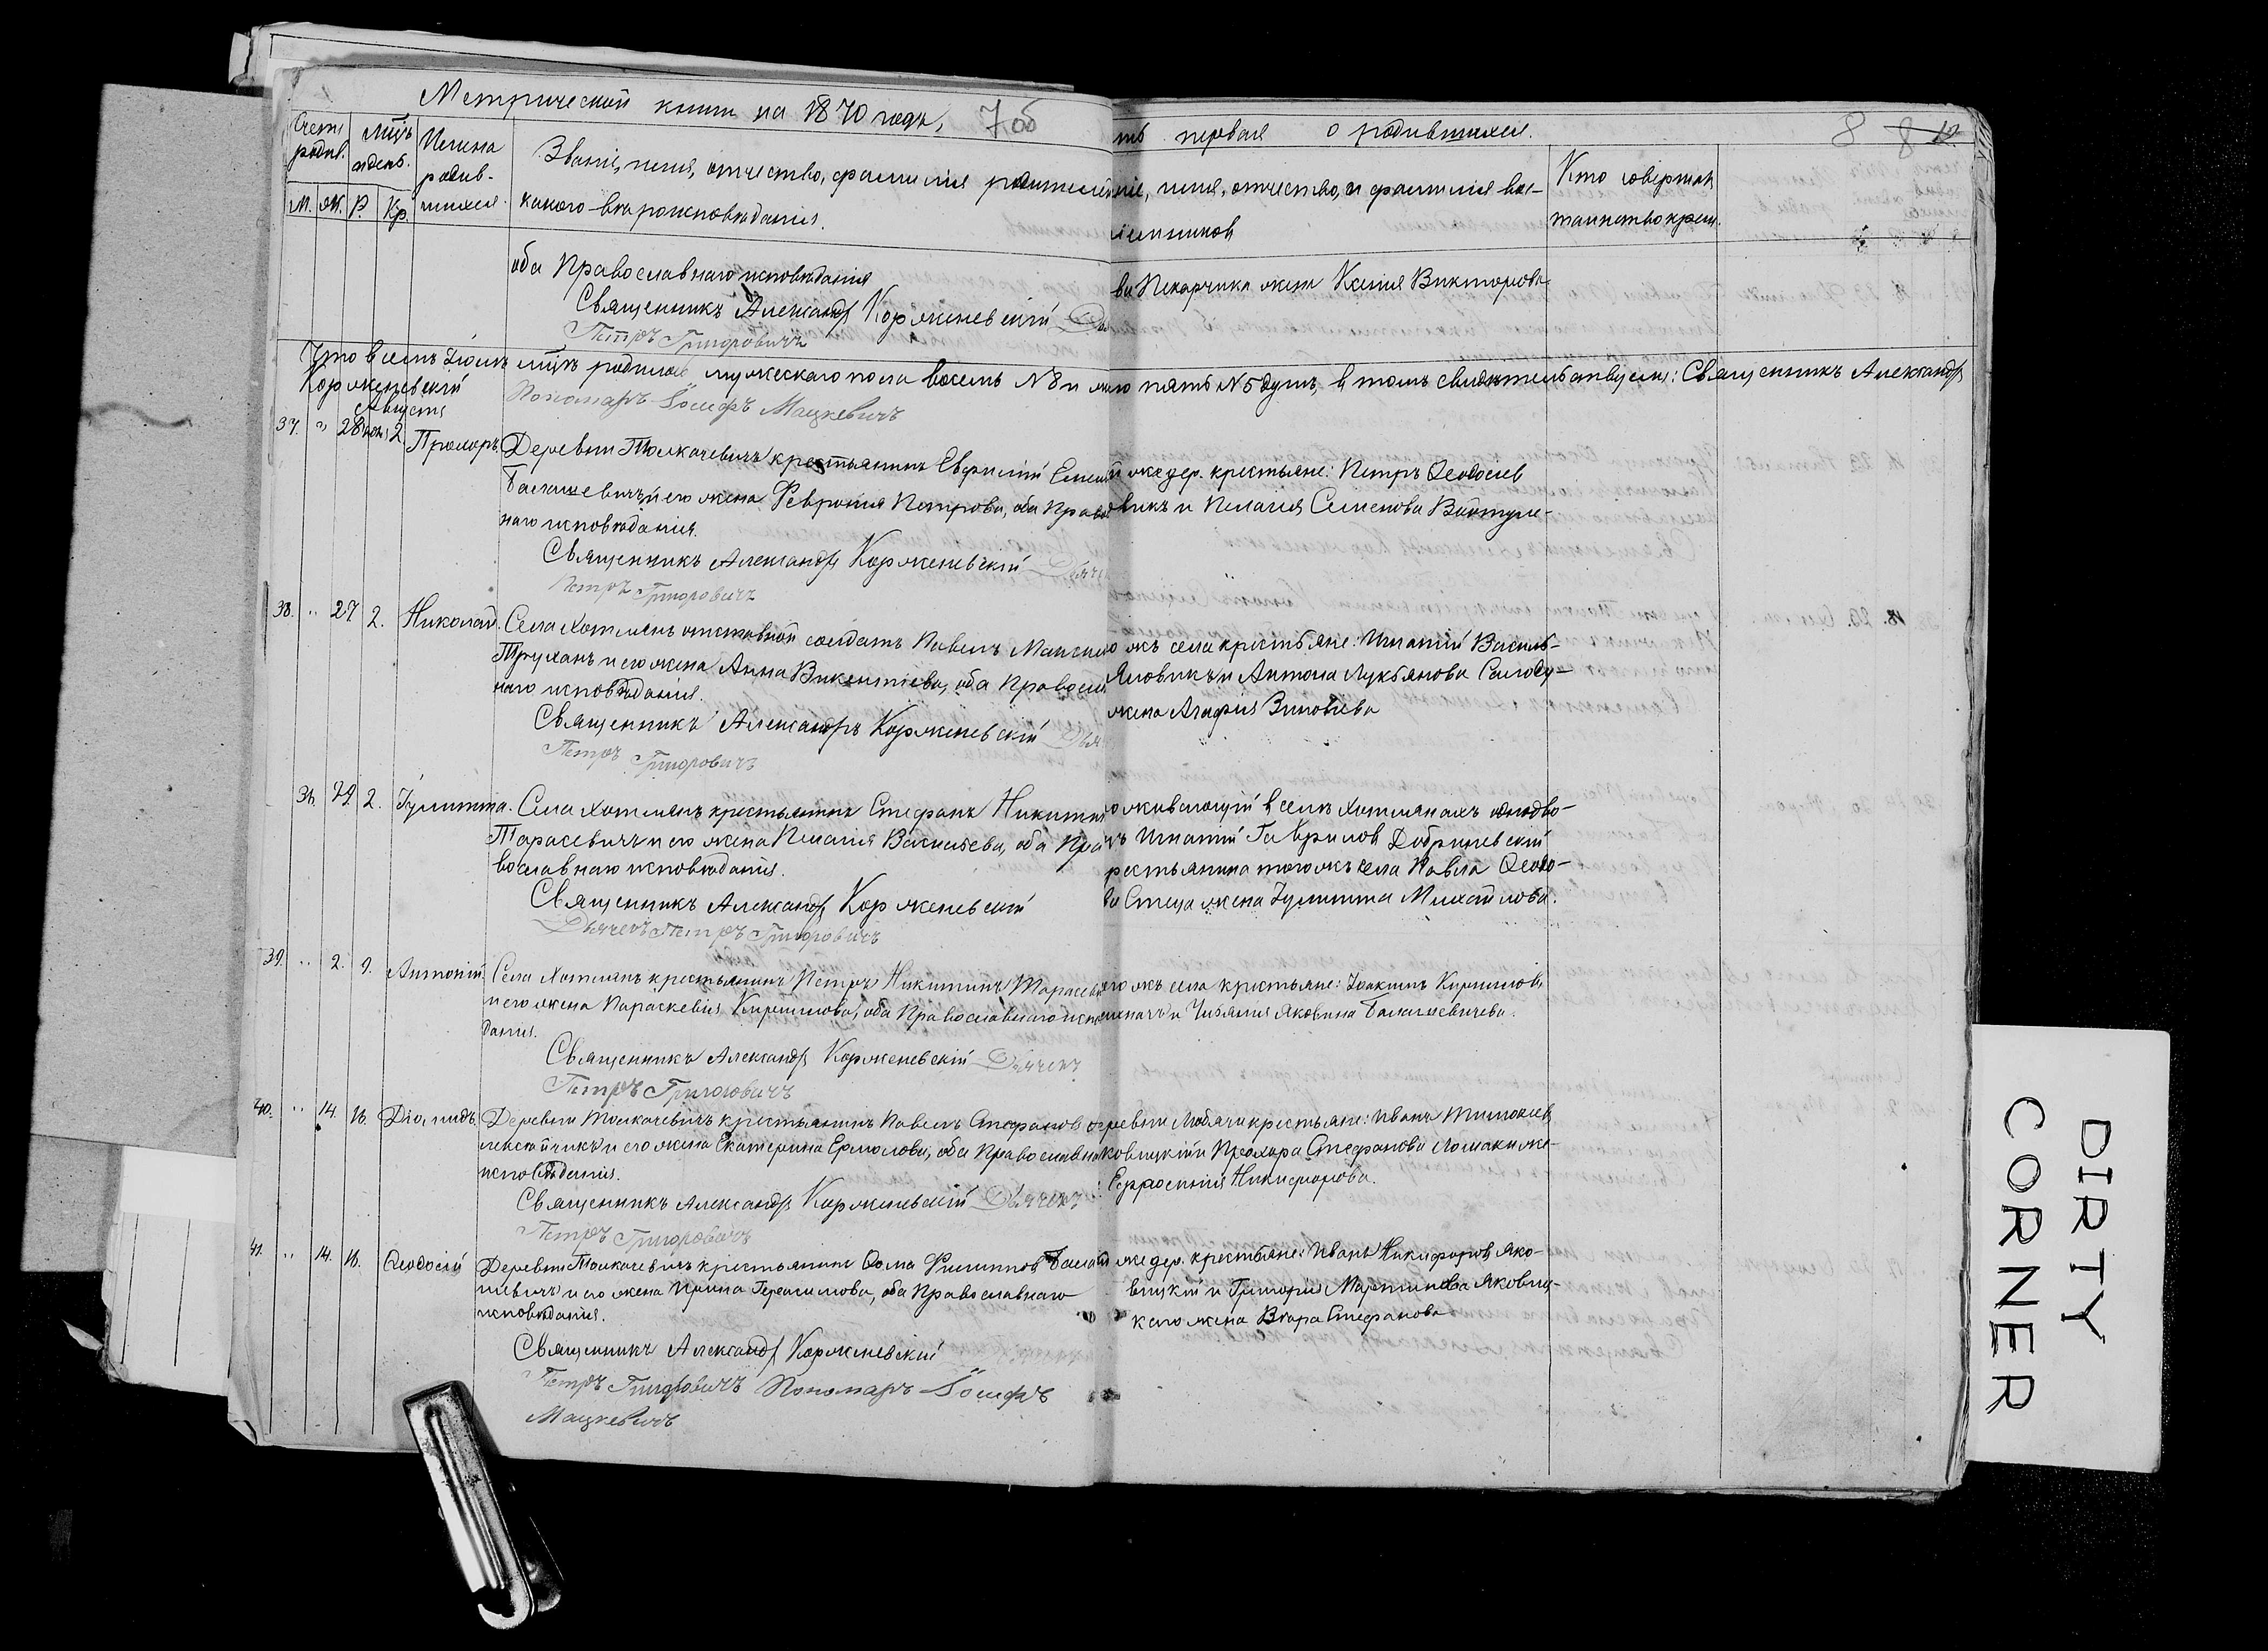 Метрической книги на 1870 годъ,
7 об
ть первая о родившихся.
8
8
Счетъ родив.
м. ж.
Р. Кр.
Имена родив-
шихся.
Званіе, имя, отчество, фамилія родителей
какого вѣроисповѣданія.
ніе, имя, отчество, и фамилія вос-
іемниковъ
Кто совершалъ
таинство крещ.
оба Православнаго исповѣданія
Священникъ Александръ Корженевскій
Петръ Григоровичъ
ва Пекарчика жена Ксенія Викторова
Что въ семъ Іюлѣ мцѣ родилось мужескаго пола восемь №8 и пять №5 душъ, въ томъ свидѣтельствуемъ: Священникъ Александръ
Корженевскій
Пономаръ Іосифъ Мацкевичъ
Августъ
37. " 28 2. Прохоръ. Деревни Толкачевичъ крестьянинъ Евфимій
Балашевичъ и его жена Февронія Петрова, оба Право
наго исповѣданія.
Священникъ Александръ Корженевскій
Петръ Григоровичъ
же дер. крестьяне: Петръ Ѳеодосіев
овикъ и Пелагія Семенова
38. " 27 2. Николай. Села Хотлянъ отставной солдатъ Павелъ
Труханъ и его жена Анна Викентіева, оба Правосл
наго исповѣданія.
Священникъ Александръ Корженевскій
Петръ Григоровичъ
о жъ села крестьяне: Игнатій Василь-
Яловикъ и Антона Лукьянова
жена Агафія Зиновіева
2. Іулитта. Села Хотлянъ крестьянинъ Стефанъ Никитин
Тарасевичъ и его жена Пелагія Васильева, оба Пра
вославнаго исповѣданія.
Священникъ Александръ Корженевскій
Дьячекъ Петръ Григоровичъ
о живающій въ селѣ Хотлянахъ однодво-
ъ Игнатій Гаврилов Добрилевскій
рестьянина тогожъ села Павла Ѳеодо-
ва Стеца жена Іулитта Михайлова.
39. " 2. 9. Антоній. Села Хотлянъ крестьянинъ Петръ Никитинъ Тарасеви
и его жена Параскевія Кириллова, оба Православнаго испо
данія.
Священникъ Александръ Корженевскій Дьячекъ
Петръ Григоровичъ
го жъ села крестьяне: Іоакимъ Кириллов,
и Ульянія Яковина Балашевичева.
40. " 14. 16. Діомидъ. Деревни Толкачевичъ крестьянинъ Павелъ Стефановъ
и его жена Екатерина Ермолова, оба Православна
исповѣданія.
Священникъ Александръ Корженевскій Дьячекъ
Петръ Григоровичъ
еревни Любячи крестьяне: Иванъ Тимоѳеев
ковицкій и Прохора Стефанова
Евфросинія Никифорова.
41. " 14. 16. Ѳеодосій Деревни Толкачевичъ крестьянинъ Ѳома Филиппов
и его жена Ирина Герасимова, оба Православнаго
исповѣданія.
Священникъ Александръ Корженевскій
Петръ Григоровичъ Пономаръ Іосифъ
Мацкевичъ
же дер. крестьяне: Иванъ Никифоров Яко-
вицкій и Григорія Мартинова Яковиц-
каго жена Вѣра Стефанова
DIRTY
CORNER